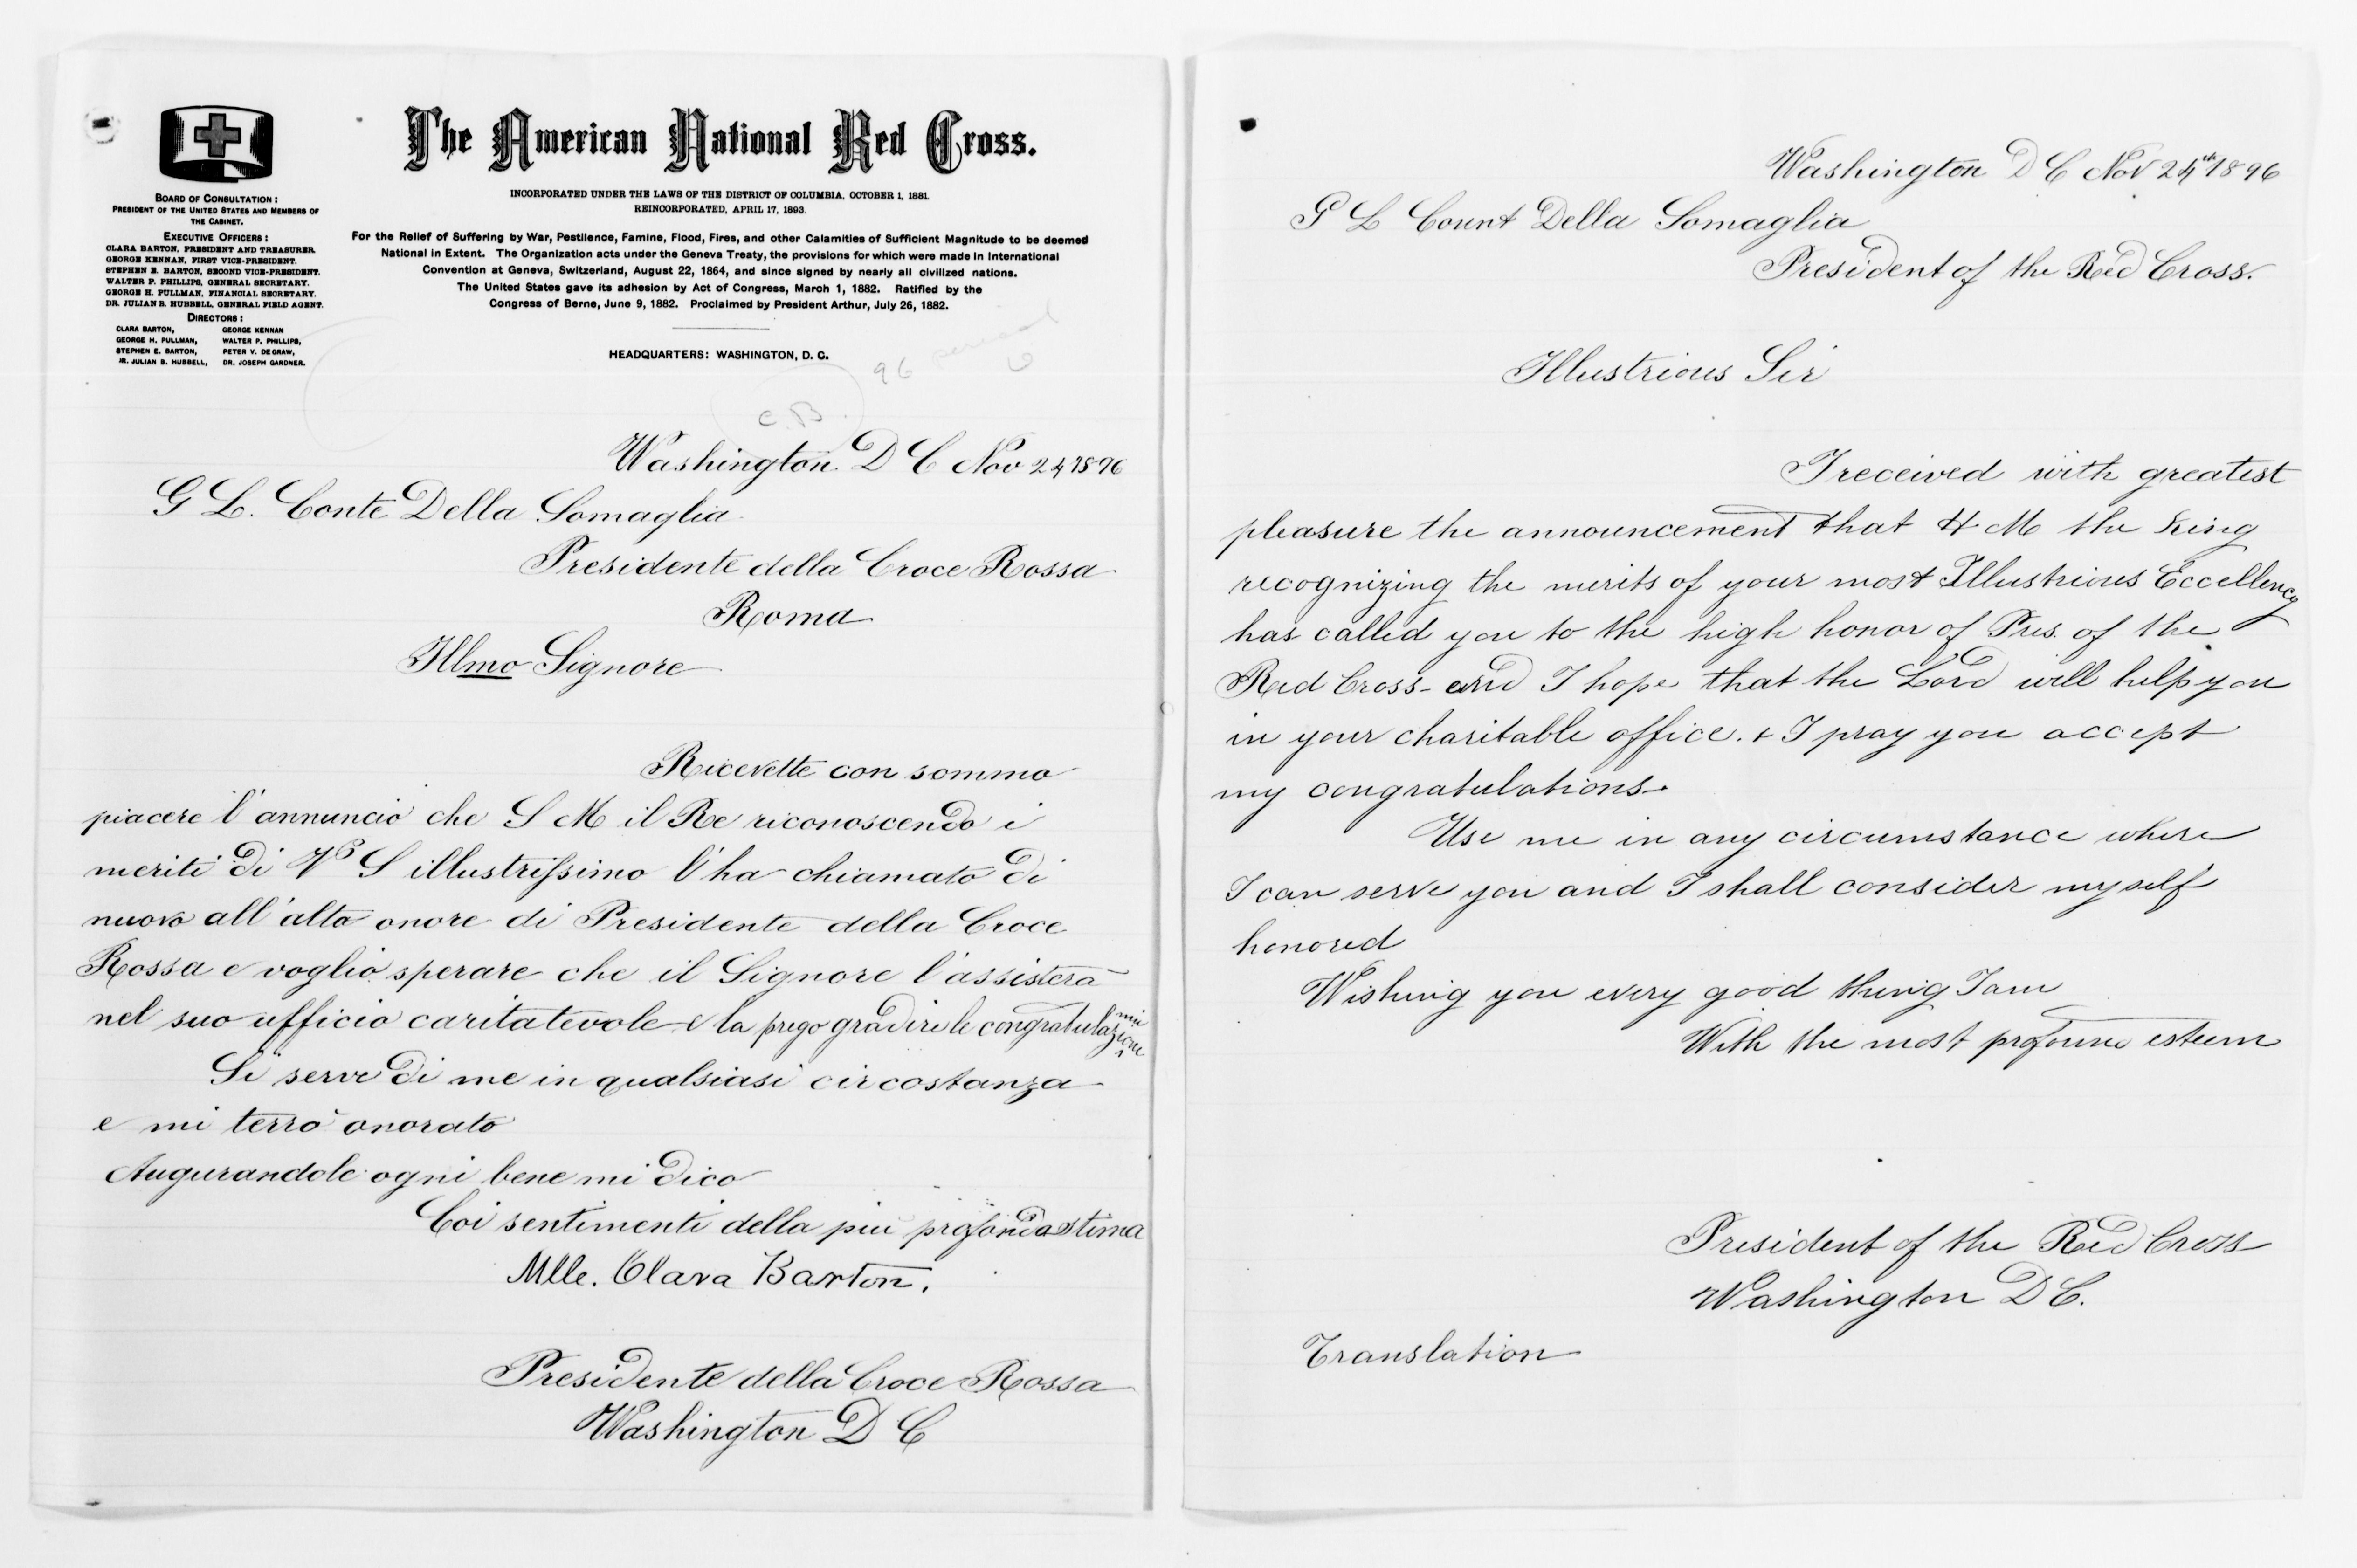 The American National Red Cross.
INCORPORATED UNDER THE LAWS OF THE DISTRICT OF COLUMBIA, OCTOBER 1, 1881.
REINCORPORATED, APRIL 17, 1893.
For the Relief of Suffering by War, Pestilence, Famine, Flood, Fires, and other Calamities of Sufficient Magnitude to be deemed
National in Extent. The Organization acts under the Geneva Treaty, the provisions for which were made in International
Convention at Geneva, Switzerland, August 22, 1864, and since signed by nearly all civilized nations.
The United States gave its adhesion by Act of Congress, March 1, 1882. Ratified by the
Congress of Berne, June 9, 1882. Proclaimed by President Arthur, July 26, 1882.
HEADQUARTERS: WASHINGTON, D. C.
BOARD OF CONSULTATION:
PRESIDENT OF THE UNITED STATES AND MEMBERS OF
THE CABINET.
EXECUTIVE OFFICERS:
CLARA BARTON, PRESIDENT AND TREASURER.
GEORGE KENNAN, FIRST VICE-PRESIDENT.
STEPHEN E. BARTON, SECOND VICE-PRESIDENT.
WALTER P. PHILLIPS, GENERAL SECRETARY.
GEORGE H. PULLMAN, FINANCIAL SECRETARY.
DR. JULIAN B. HUBBELL, GENERAL FIELD AGENT.
DIRECTORS:
CLARA BARTON, GEORGE KENNAN
GEORGE H. PULLMAN, WALTER P. PHILLIPS,
STEPHEN E. BARTON, PETER V. DEGRAW,
DR. JULIAN B. HUBBELL, DR. JOSEPH GARDNER.
96
C.B.
Washington D C Nov 24 1896
G L. Conte Della Somaglia
Presidente della Croce Rossa
Roma
Illmo Signore
Ricevette con sommo
piacere l'annuncio che S M il Re riconoscendo i
meriti di Va S illustrissimo l'ha chiamato di
nuovo all'alto onore di Presidente della Croce
Rossa e voglio sperare che il Signore l'assisterà
nel suo ufficio caritatevole e la prego gradire le mie congratulazioni
Si serve di me in qualsiasi circostanza
e mi terrò onorato
Augurandole ogni bene mi dico
Coi sentimenti della piu profonda stima
Mlle. Clara Barton.
Presidente della Croce Rossa
Washington D C
Washington D C Nov 24th 1896
G L Count Della Somaglia
President of the Red Cross.
Illustrious Sir
I received with greatest
pleasure the announcement that H M the King
recognizing the merits of your most Illustrious Eccellency
has called you to the high honor of Pres. of the
Red Cross - and I hope that the Lord will help you
in your charitable office. & I pray you accept
my congratulations.
Use me in any circumstance where
I can serve you and I shall consider myself
honored
Wishing you every good thing I am
With the most profound esteem
President of the Red Cross
Washington D C.
Translation